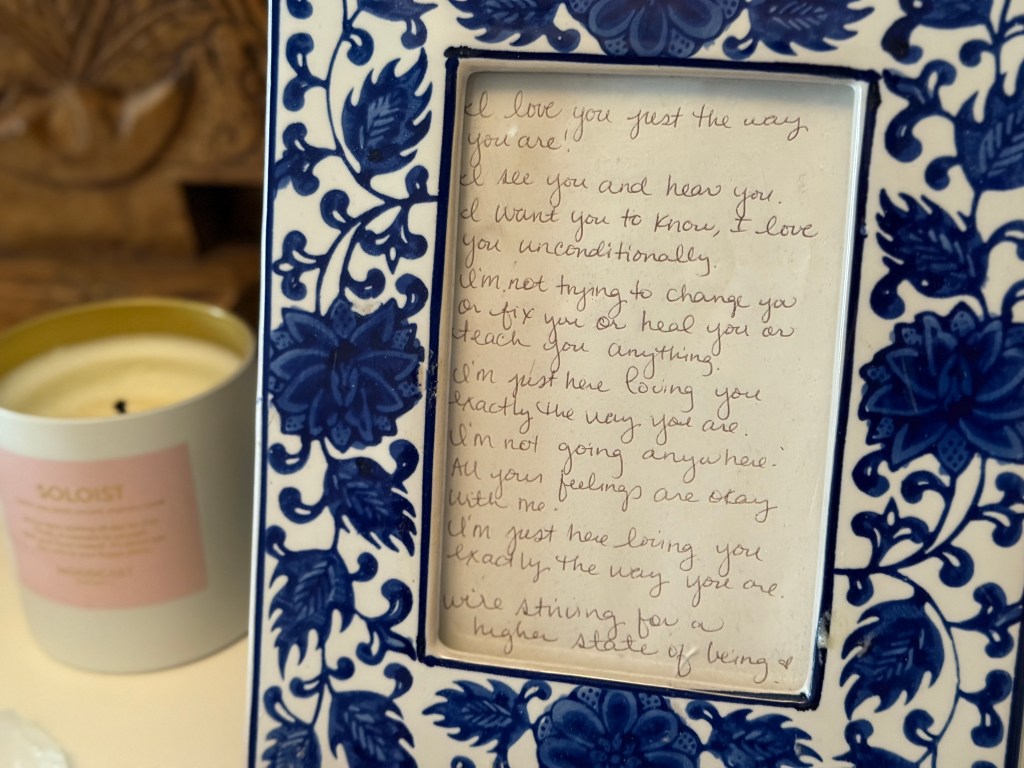 I love you just the way
you are!
I see you and hear you.
I want you to know, I love
you unconditionally.
I'm not trying to change you
or fix you or heal you or
teach you anything.
I'm just here loving you
exactly the way you are.
I'm not going anywhere.
All your feelings are okay
with me.
I'm just here loving you
exactly the way you are.
we're striving for a
higher state of being
SOLOIST